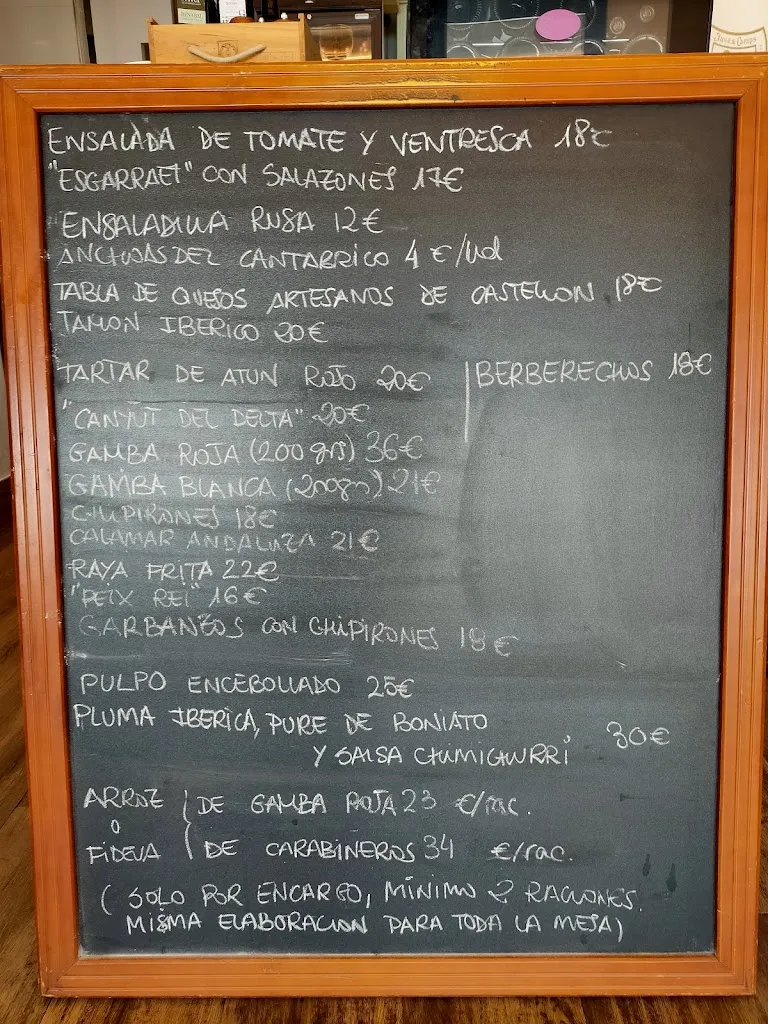 ENSALADA DE TOMATE Y VENTRESCA 18€
"ESGARRAET" CON SALAZONES 17€
ENSALADILLA RUSA 12€
ANCHOAS DEL CANTABRICO 4 €/Ud
TABLA DE QUESOS ARTESANOS DE CASTELLON 18€
JAMON IBERICO 20€
TARTAR DE ATUN ROJO 20€
BERBERECHOS 18€
"CANYUT DEL DELTA" 20€
GAMBA ROJA (200 grs) 36€
GAMBA BLANCA (200grs) 21€
CHIPIRONES 18€
CALAMAR ANDALUZA 21€
RAYA FRITA 22€
"PEIX REI" 16€
GARBANZOS CON CHIPIRONES 18€
PULPO ENCEBOLLADO 25€
PLUMA IBERICA, PURE DE BONIATO
Y SALSA CHIMICHURRI 30€
ARROZ
O
FIDEUA
DE GAMBA ROJA 23 €/rac.
DE CARABINEROS 34 €/rac.
(SOLO POR ENCARGO, MÍNIMO 2 RACIONES.
MISMA ELABORACION PARA TODA LA MESA)